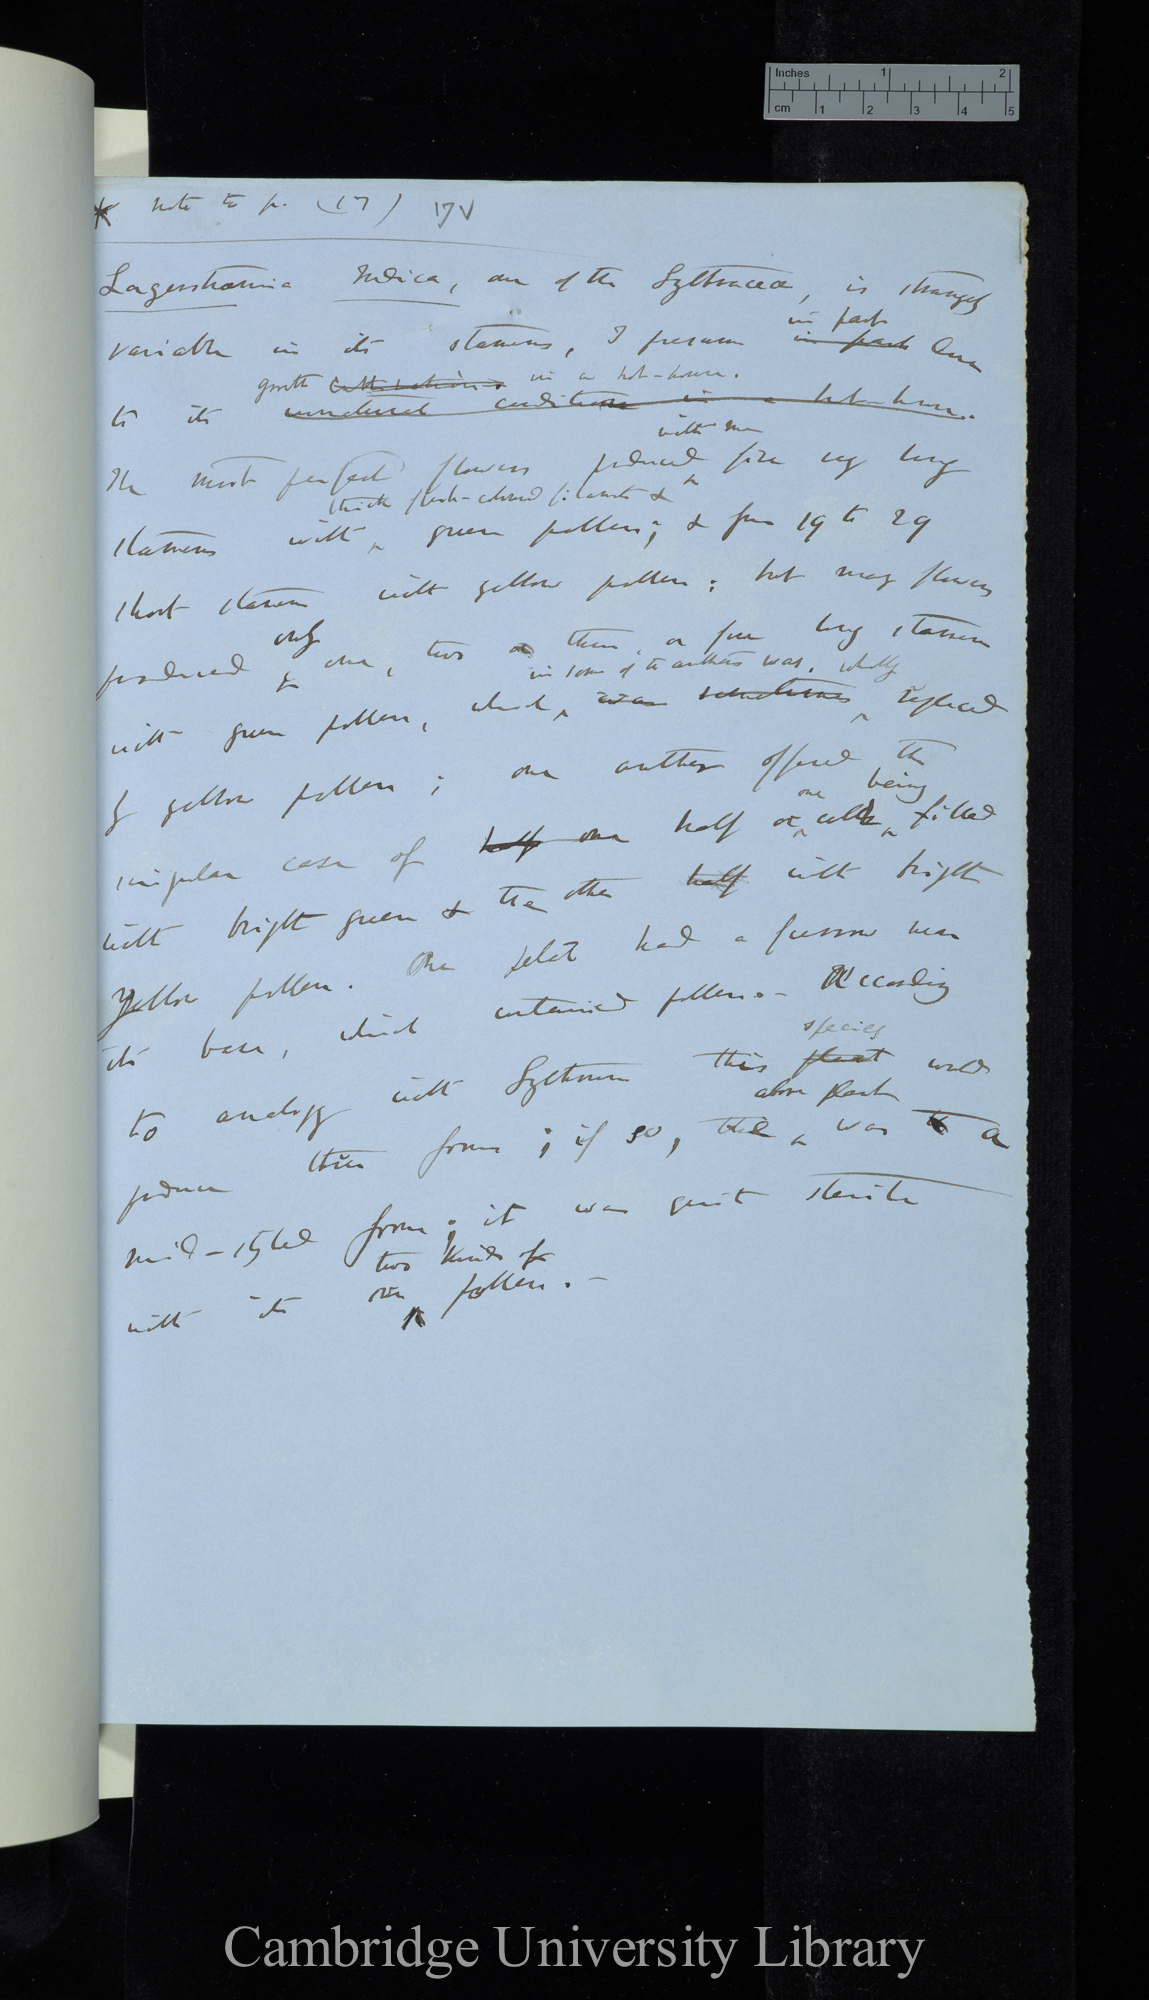 Inches 1 2
cm 1 2 3 4 5
* note to p. (17) 17v
Lagerstrœmia Indica, one of the Lythraceæ, is strangely
in part
variable in its stamens, I presume in part due
growth cultivation in a hot-house.
to its unnatural conditions in a hot-house.
with me
The most perfect flowers produced five very long
thick flesh-coloured filaments &
stamens with green pollen; & from 19 to 29
short stamens with yellow pollen; but many flowers
only
produced one, two or three, or four long stamens
in some of the anthers was, wholly
with green pollen, which was sometimes replaced
by yellow pollen; one anther offered the
one being
singular case of half one half or cell filled
with bright green & the other half with bright
yellow pollen. One petal had a furrow near
its base, which contained pollen.— According
species
to analogy with Lythrum this plant would
above plant
produce three forms; if so, the was a
mid-styled form; it was quite sterile
two kinds of
with its own pollen.—
Cambridge University Library